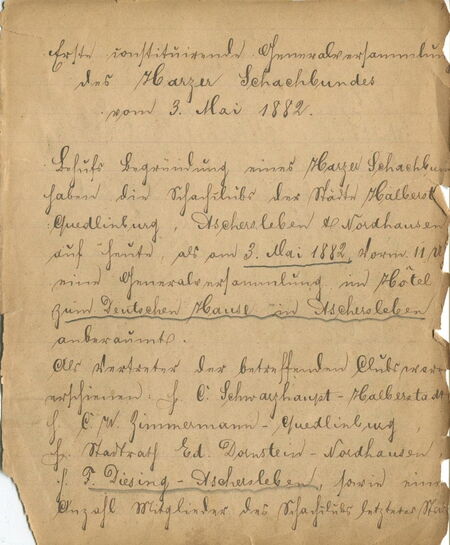 Erste constituirende Generalversammlun
des Harzer Schachbundes
vom 3. Mai 1882.
Behufs Begründung eines Harzer Schachbun
haben die Schachclubs der Städte Halberst
Quedlinburg, Aschersleben & Nordhausen
auf heute, als am 3. Mai 1882, Vorm. 11 U
eine Generalversammlung im Hôtel
zum Deutschen Hause in Aschersleben
anberaumt.
Als Vertreter der betreffenden Clubs ware
erschienen: H. C. Schwarzhaupt - Halberstadt
H. C. W. Zimmermann - Quedlinburg,
Hr. Stadtrath Ed. - Nordhausen
H. F. Diesing - Aschersleben, sowie eine
Anzahl Mitglieder des Schachclubs letzterer Stad